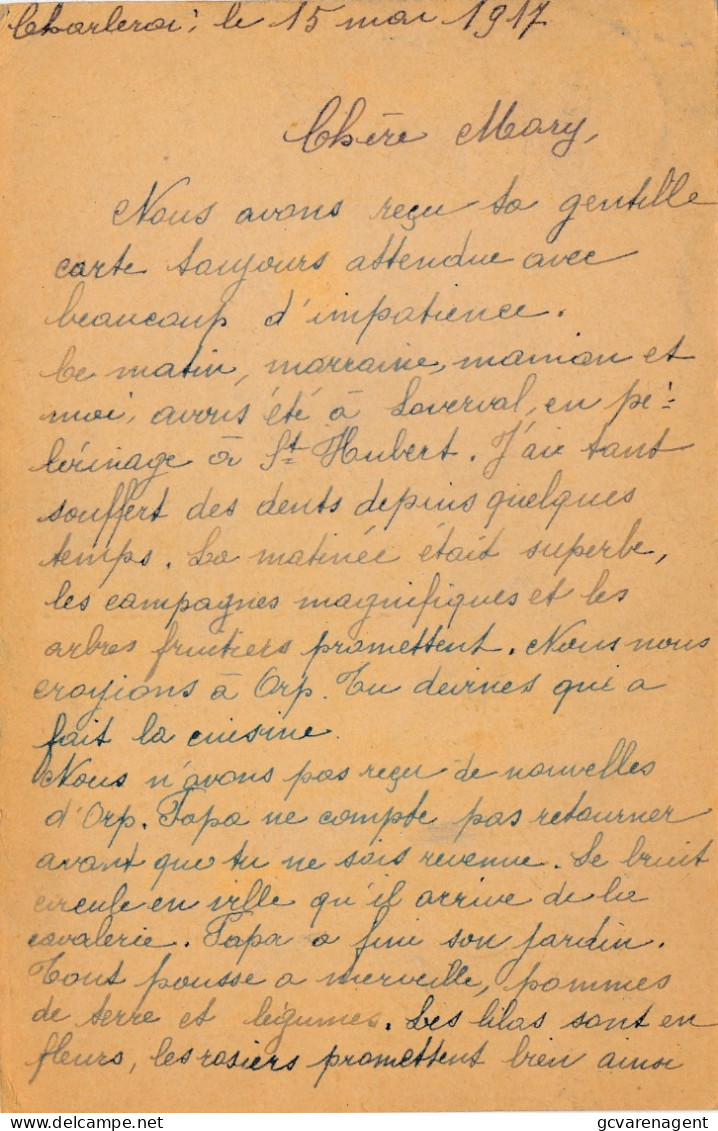 Charleroi, le 15 mai 1917
Chère Mary,
Nous avons reçu ta gentille
carte toujours attendue avec
beaucoup d'impatience.
Ce matin, marraine, maman et
moi, avons été à Loverval, en pé-
lérinage à St Hubert. J'ai tant
souffert des dents depuis quelques
temps. La matinée était superbe,
les campagnes magnifiques et les
arbres fruitiers promettent. Nous nous
croyions à Orp. Tu devines qui a
fait la cuisine.
Nous n'avons pas reçu de nouvelles
d'Orp. Papa ne compte pas retourner
avant que tu ne sois revenue. Le bruit
circule en ville qu'il arrive de la
cavalerie. Papa a fini son jardin.
Tout pousse a merveille, pommes
de terre et légumes. Les lilas sont en
fleurs, les rosiers promettent bien ainsi
gcvarenagent